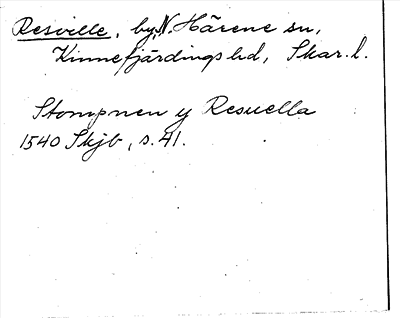 Resville, by, N. Härene sn,
Kinnefjärdings hd, Skar. l.
Stompnen y Resuella
1540 Skjb, s. 41.